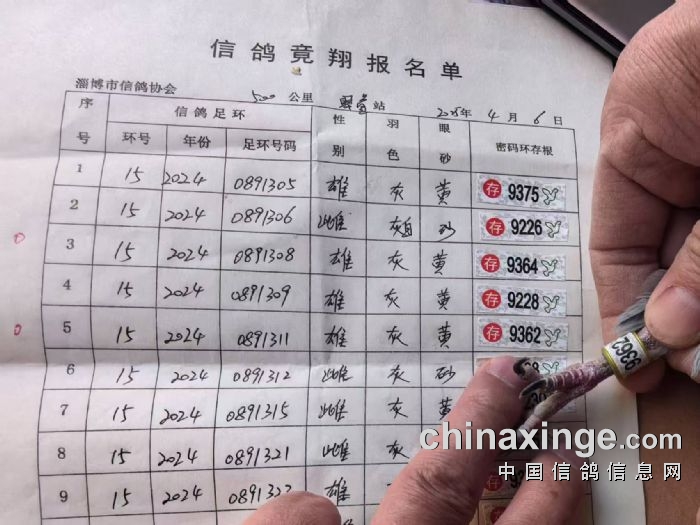 信鸽竞翔报名单
淄博市信鸽协会 500 公里 站 2025年 4 月 6 日
序号 信鸽足环 性别 羽色 眼砂 密码环存根
环号 年份 足环号码
1 15 2024 0891305 雄 灰 黄 存 9375
2 15 2024 0891306 雌 砂 存 9226
3 15 2024 0891308 雄 灰 黄 存 9364
4 15 2024 0891309 雄 灰 黄 存 9228
5 15 2024 0891311 雄 灰 黄 存 9362
6 15 2024 0891312 雌 灰 砂
7 15 2024 0891315 雌 灰 黄
8 15 2024 0891321 雌 灰
9 15 2024 雄
9362
chinaxinge.com
中国信鸽信息网